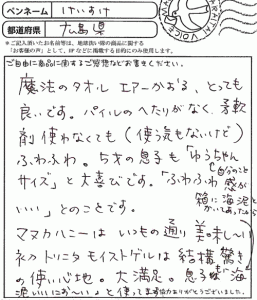 ペンネーム けいすけ
都道府県 広島県
※ご記入頂いたお名前等は、地球洗い隊の商品に関する
「お客様の声」として、HPなどに掲載する目的にのみ使用します。
ご自由に商品に関するご感想などお書きください。
魔法のタオル エアーかおる、とっても
良いです。パイルのへたりがなく、柔軟
剤使わなくても(使う気もないけど)
ふわふわ。5才の息子も「ゆうちゃん
サイズ」と大喜びです。「ふわふわ感が
いい」とのことです。
マヌカハニーはいつもの通り美味しい
モイストゲルは結構驚き
の使い心地。大満足。息子も「海
泥いいにお~い」と使ってます
ご協力ありがとうございました。